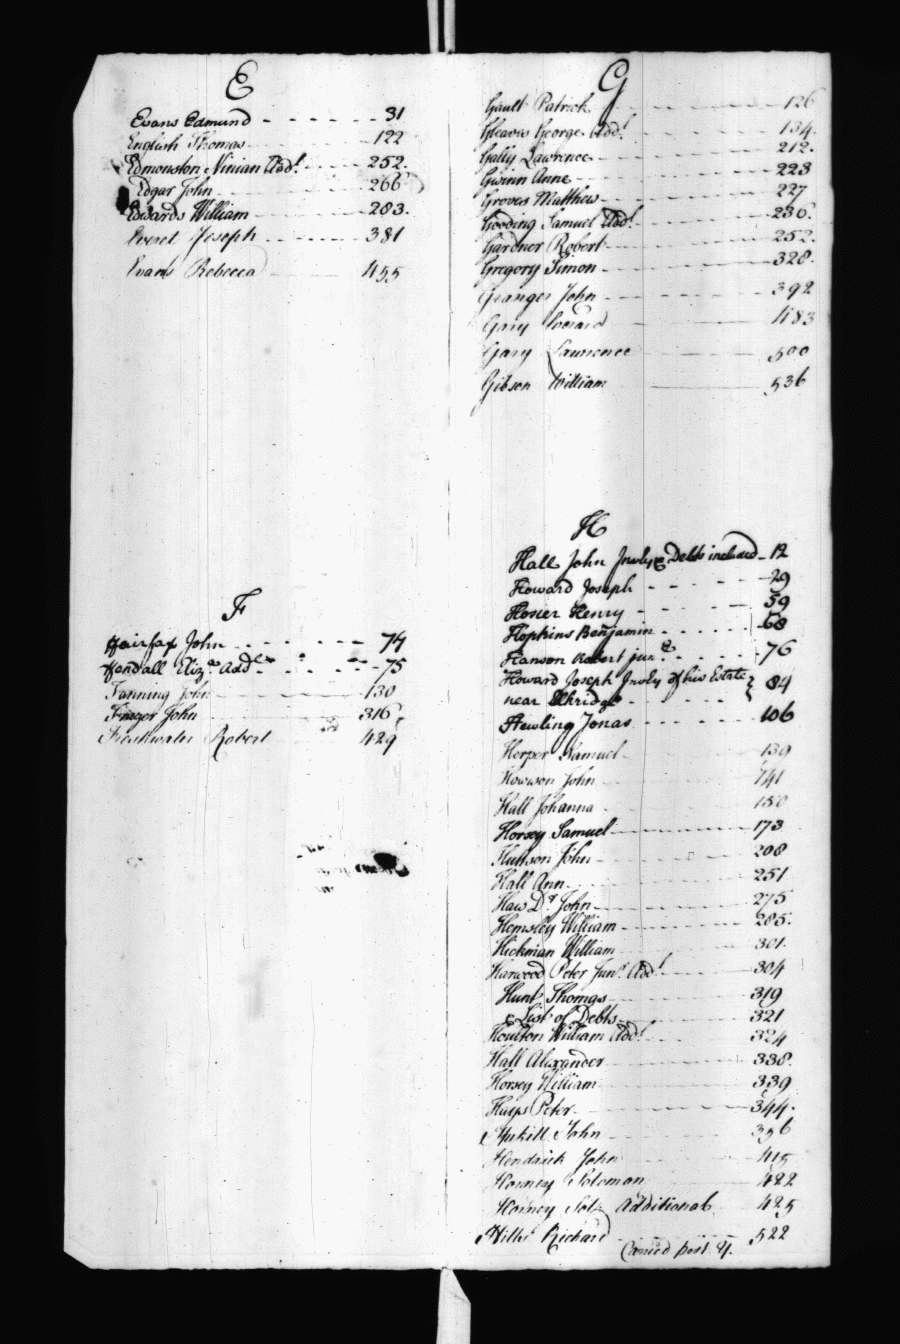 E
Evans Edmund 31
English Thomas 122
Edmonston Ninian Add.l 252.
Edgar John 266
Edwards William 283.
Everet Joseph 381
Evans Rebecca 455
F
Fairfax John 74
Fendall Eliz.a Add.l 75
Fanning John 130
Frazer John 316
Freshwater Robert 429
G
Gault Patrick 126
Gleaves George Add.l 134.
Gally Lawrence 212.
Gwinn Anne 223
Groves Matthew 227
Gooding Samuel Add.l 236.
Gardner Robert 252.
Gregory Simon 328.
Granger John 392
Gary Everard 483
Gary Lawrence 500
Gibson William 536
H
Hall John Debts included 12
Howard Joseph 29
Hosier Henry 59
Hopkins Benjamin 68
Hanson Robert jun.r 76
Howard Joseph Invty of his Estate
near Elkridge 84
Hewling Jonas 106
Harper Samuel 139
Howson John 141
Hall Johanna 150
Horsey Samuel 173
Hutson John 208
Hall Ann 251
Haw D.r John 275
Hemsley William 285.
Hickman William 301.
Harwood Peter Jun.r Add.l 304
Hunt Thomas 319
List of Debts 321
Houlton William Add.l 324
Hall Alexander 338.
Horsey William 339
Hays Peter 344.
John 356
Hendrick John 415
Horney Solomon 422
Horney Sol. Additional 425
Hills Richard 522
Carried post